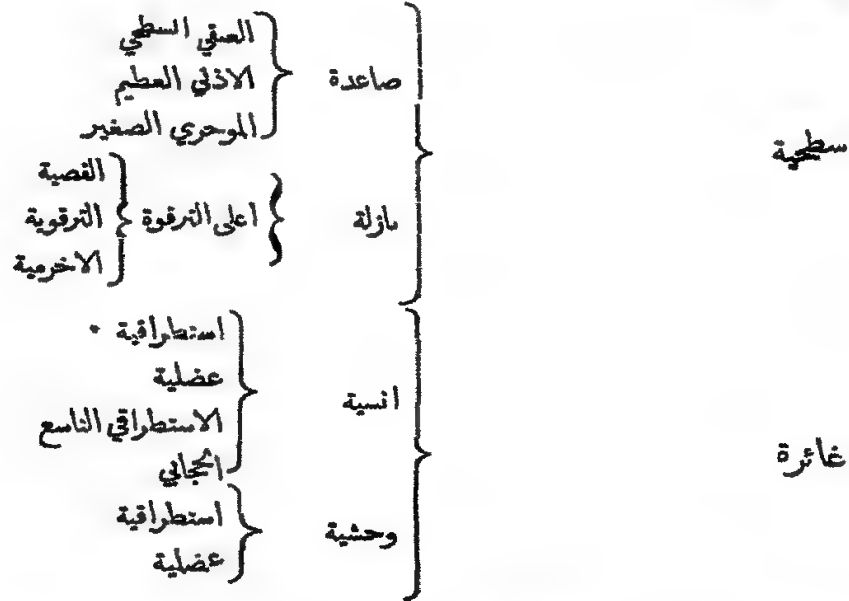 سطحية
صاعدة
العنقي السطحي
الاذني العظيم
الموخري الصغير
نازلة
اعلى الترقوة
القصية
الترقوية
الاخرمية
غائرة
انسية
استطراقية *
عضلية
الاستطراقي التاسع
الحجابي
وحشية
استطراقية
عضلية